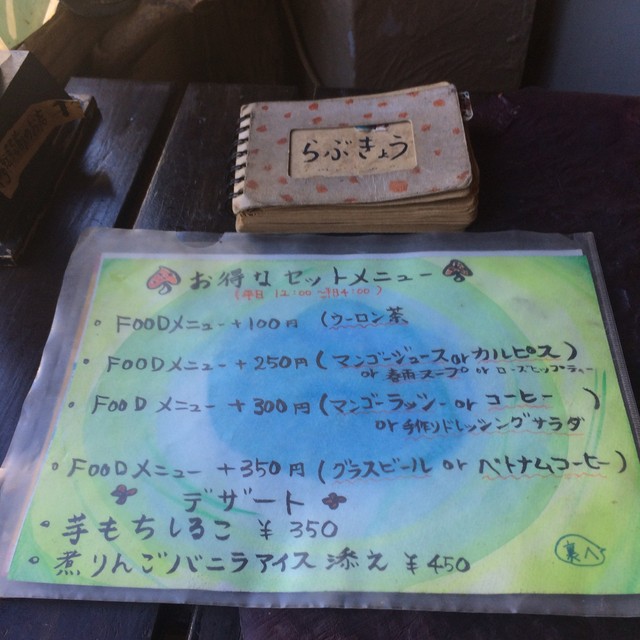 らぶきょう
お得なセットメニュー
(平日 12:00~14:00)
• FOODメニュー +100円 (ウーロン茶
• FOODメニュー +250円 (マンゴージュース or カルピス)
or 春雨スープ or ローズヒップティー
• FOODメニュー +300円 (マンゴーラッシー or コーヒー )
or 手作りドレッシングサラダ
• FOODメニュー +350円 (グラスビール or ベトナムコーヒー)
デザート
• 芋もちしるこ ¥350
• 煮りんごバニラアイス添え ¥450
裏へ